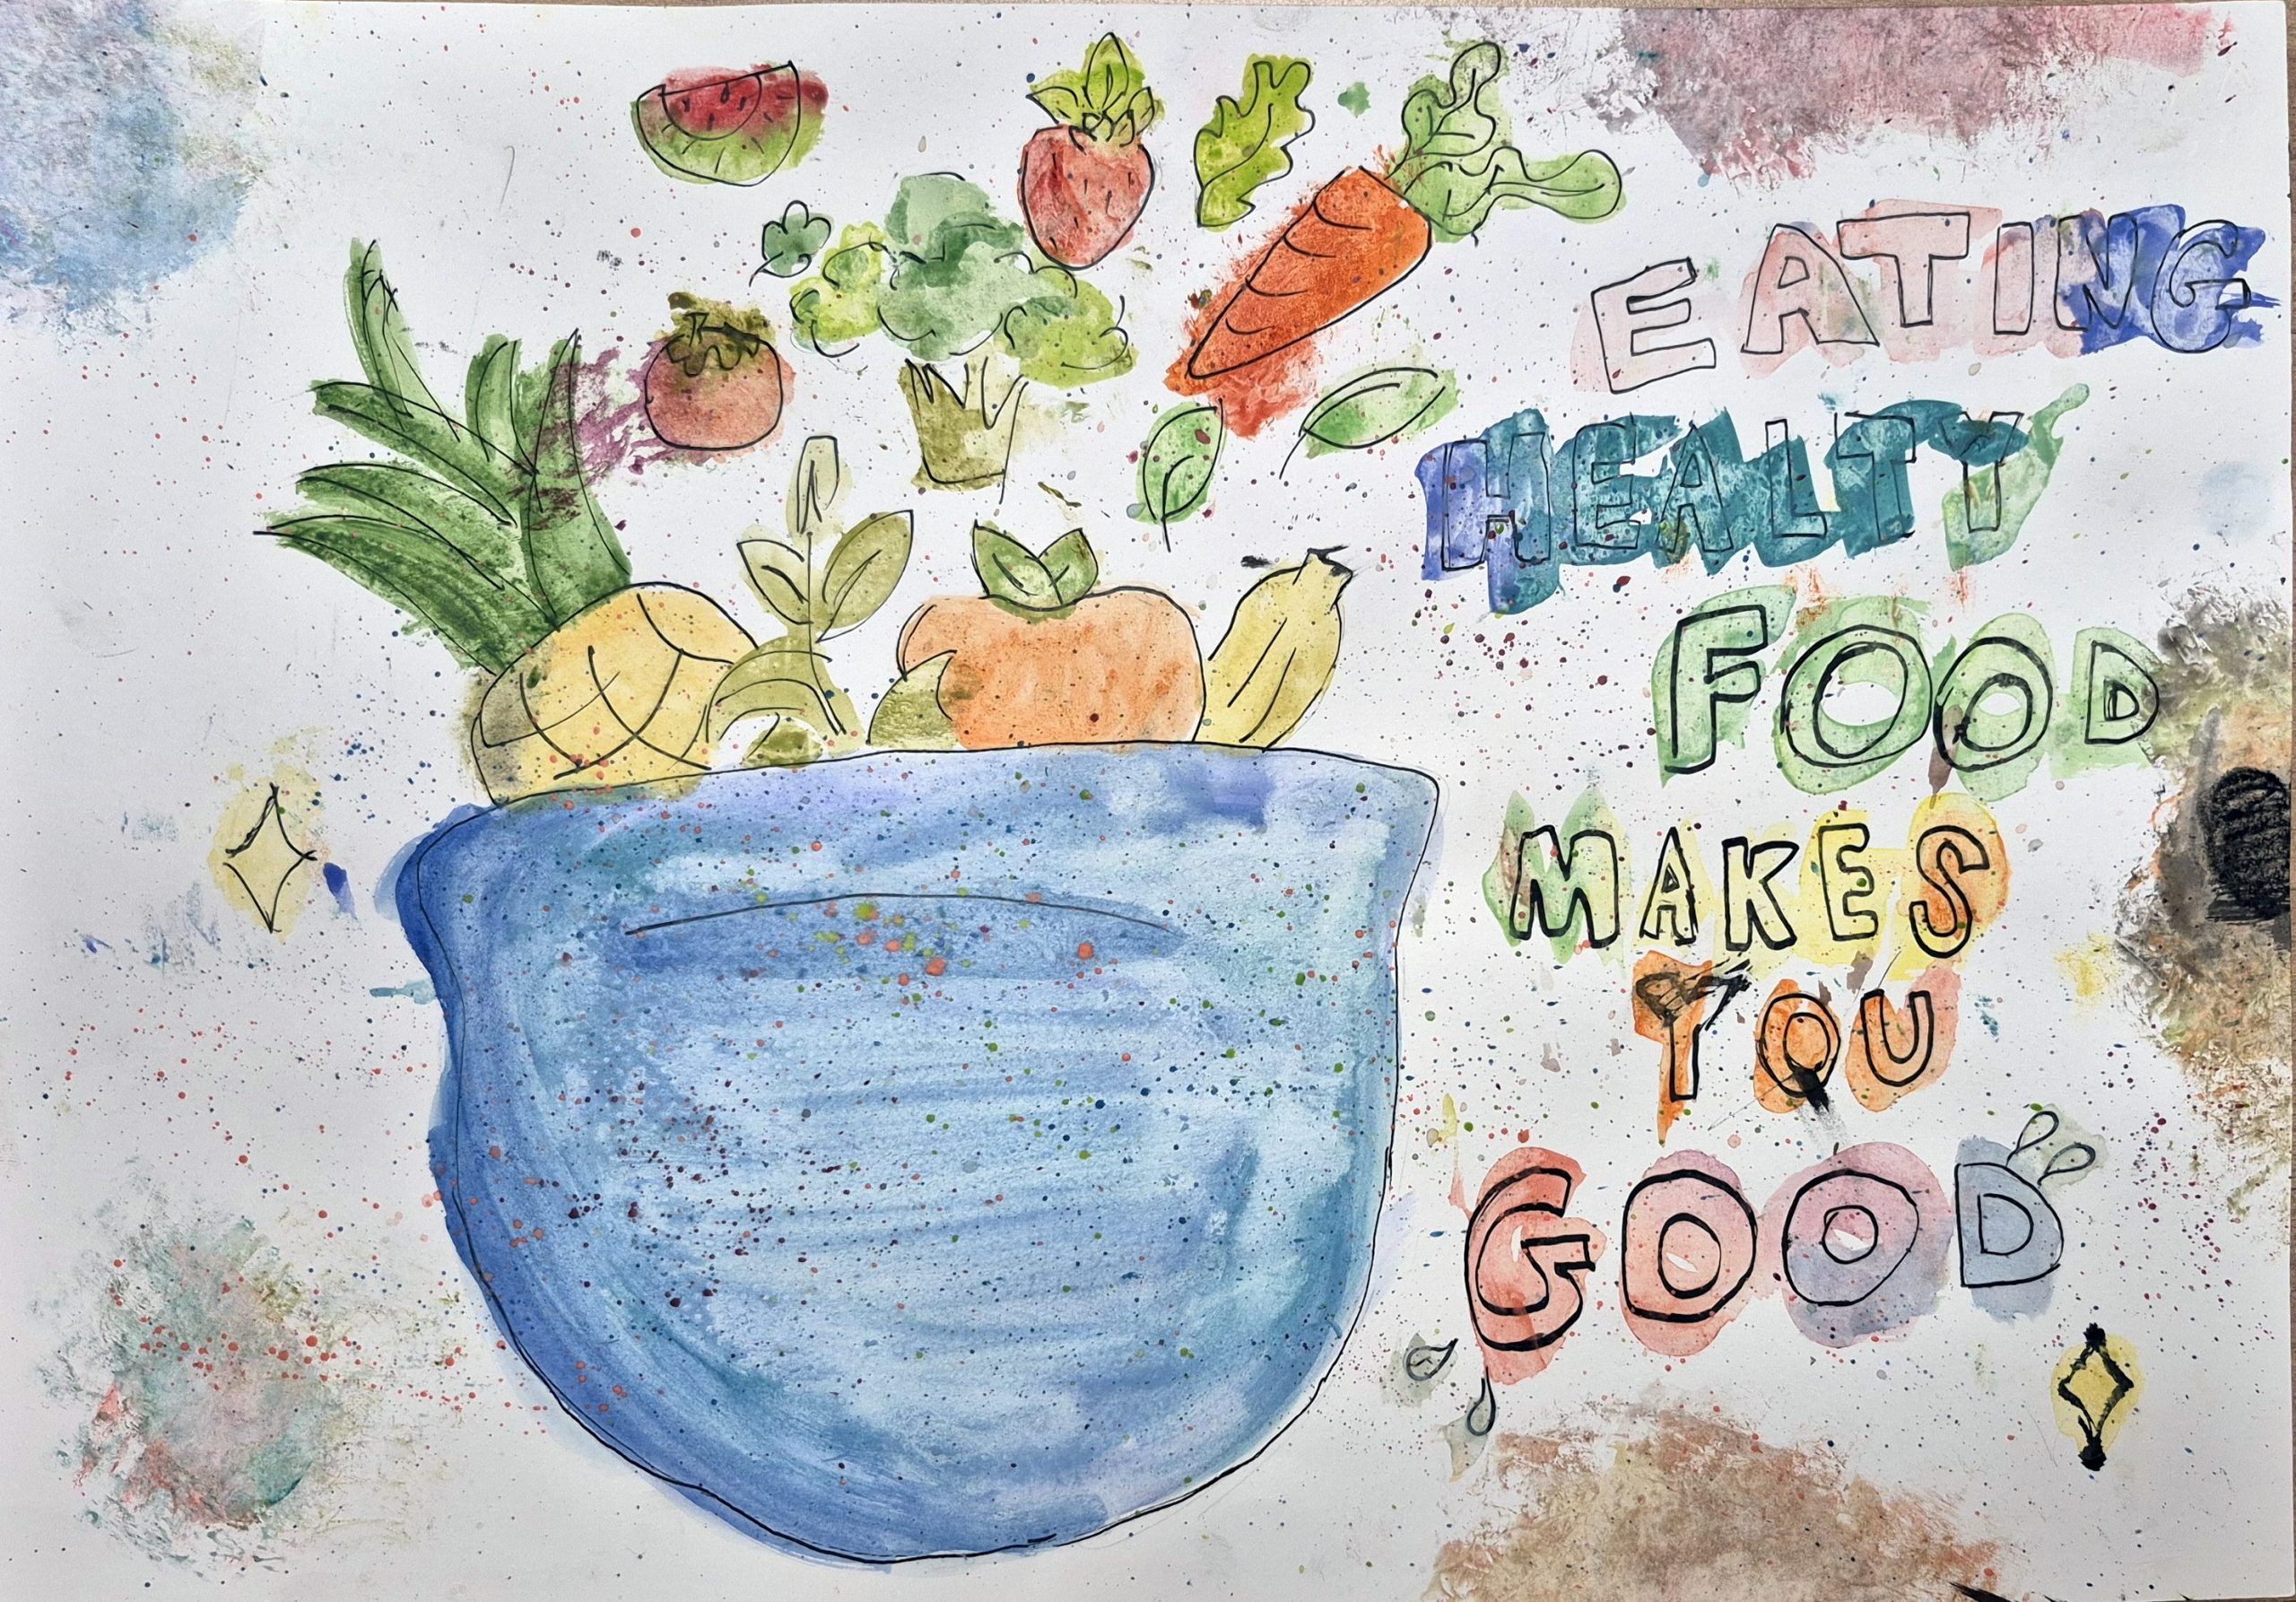 EATING
HEALTY
FOOD
MAKES
YOU
GOOD